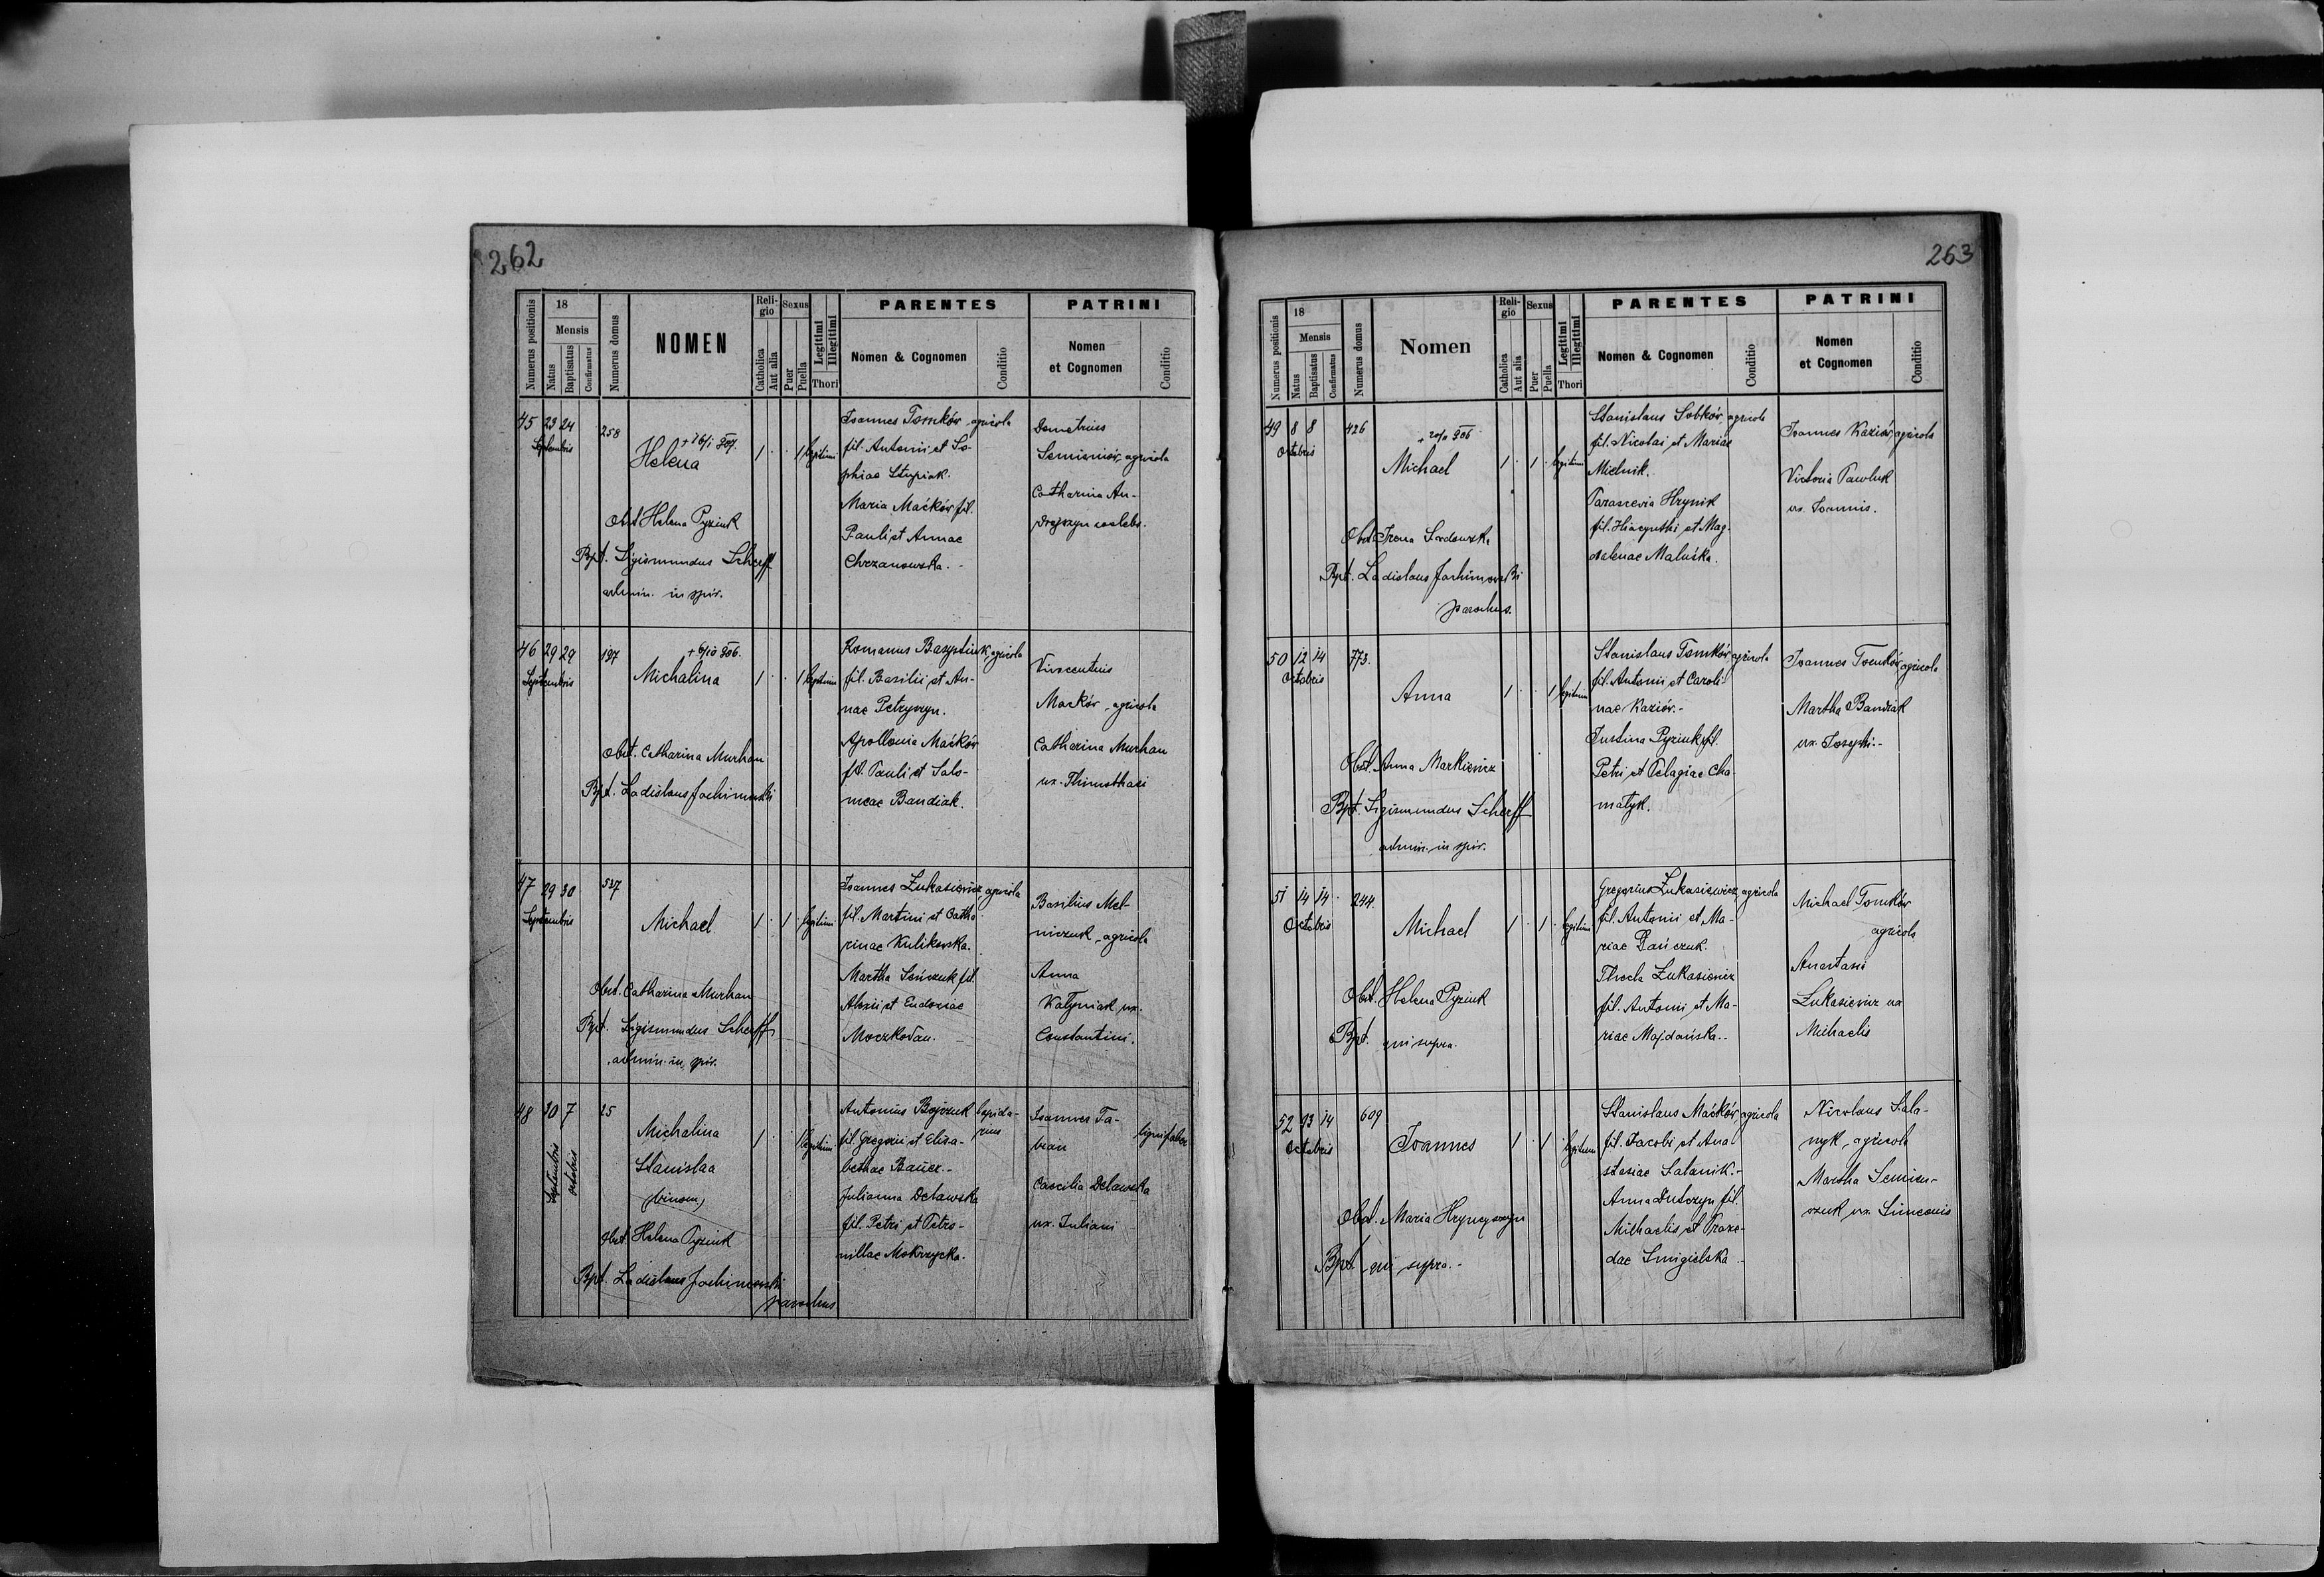 262
Numerus positionis
18
Mensis
Natus
Baptisatus
Confirmatus
Numerus domus
NOMEN
Religio
Catholica
Aut alia
Sexus
Puer
Puella
Legitimi
Illegitimi
Thori
PARENTES
Nomen & Cognomen
Conditio
PATRINI
Nomen
et Cognomen
Conditio
45 23 24 258
Septembris
Helena 1 . . 1 legitimi
Obst. Helena Pyziuk
Bpt. Sigismundus Scherff
admin. in spir.
Joannes Tomków, agricola
fil. Antonii et So-
phiae Stupiak.
Maria Maćków fil.
Pauli et Annae
Chrzanowska.
Demetrius
Semieniów, agricola
Catharina An-
46 29 29 197
Septembris
+ 6/10 906.
Michalina 1 . . 1 legitimi
Obst. Catharina Murhan
Bpt. Ladislaus Jachimowski
Romanus Bazystiuk agricola
fil. Basilii et An-
nae Petryszyn.
Apollonia Maćków
fil. Pauli et Salo-
meae Bandiak.
Vincentius
Maćków, agricola
Catharina Murhan
ux. Thimothaei
47 29 30 537
Septembris
Michael 1 . 1 . legitimi
Obst. Catharina Murhan
Bpt. Sigismundus Scherff
admin. in spir.
Joannes Łukasiewicz agricola
fil. Martini et Catha-
rinae Kulikowska.
Martha Senczuk fil.
Alexii et Eudoxiae
Moczkodan.
Basilius Mel-
niczuk, agricola
Anna
Katyniak ux.
Constantini.
48 30 7 25
Septembris
octobris
Michalina 1 . . 1 legitimi
Stanislaa
(binom)
Obst. Helena Pyziuk
Bpt. Ladislaus Jachimowski
parochus
Antonius Bojczuk lapida-
rius
fil. Gregorii et Elisa-
bethae Bauer.-
Julianna Delawska
fil. Petri et Petro-
nillae Mokrzycka.
Joannes Ta-
lignifaber
Caecilia Delawska
ux. Juliani
263
Numerus positionis
18
Mensis
Natus
Baptisatus
Confirmatus
Numerus domus
Nomen
Religio
Catholica
Aut alia
Sexus
Puer
Puella
Legitimi
Illegitimi
Thori
PARENTES
Nomen & Cognomen
Conditio
PATRINI
Nomen
et Cognomen
Conditio
49 8 8 426
Octobris
Michael 1 . 1 . legitimi
Obst. Irena Sadowska
Bpt. Ladislaus Jachimowski
parochus.
Stanislaus Sobków, agricola
fil. Nicolai et Mariae
Mielnik.
Parascevia Hrynik
fil. Hiacynthi et Mag-
dalenae Maluśka.
Joannes Kaziów, agricola
Victoria Pawluk
ux. Joannis.
50 12 14 773.
Octobris
Anna 1 . . 1 legitimi
Obst. Anna Markiewicz
Bpt. Sigismundus Scherff
admin. in spir.
Stanislaus Tomków, agricola
fil. Antonii et Caroli-
nae Kaziów.-
Justina Pyziuk fil.
Petri et Pelagiae Cha-
matyk.
Joannes Tomków agricola
Martha Bandiak
ux. Josephi.-
51 14 14 244.
Octobris
Michael 1 . 1 . legitimi
Obst. Helena Pyziuk
Bpt. qui supra.
Gregorius Łukasiewicz, agricola
fil. Antonii et Ma-
riae Dańczuk.
Thecla Łukasiewicz
fil. Antonii et Ma-
riae Majdańska..
Michael Tomków
agricola
Anastasia
Łukasiewicz ux
Michaelis
52 13 14 609
Octobris
Joannes 1 . 1 . legitimi
Obst. Maria Hryncyszyn
Bpt. qui supra.-
Stanislaus Maćków, agricola
fil. Jacobi et Ana-
stasiae Salanik.-
Anna Dutczyn fil.
Michaelis et Praxe-
dae Smigielska.-
Nicolaus Sala-
nyk, agricola
Martha Semien-
czuk ux. Simeonis